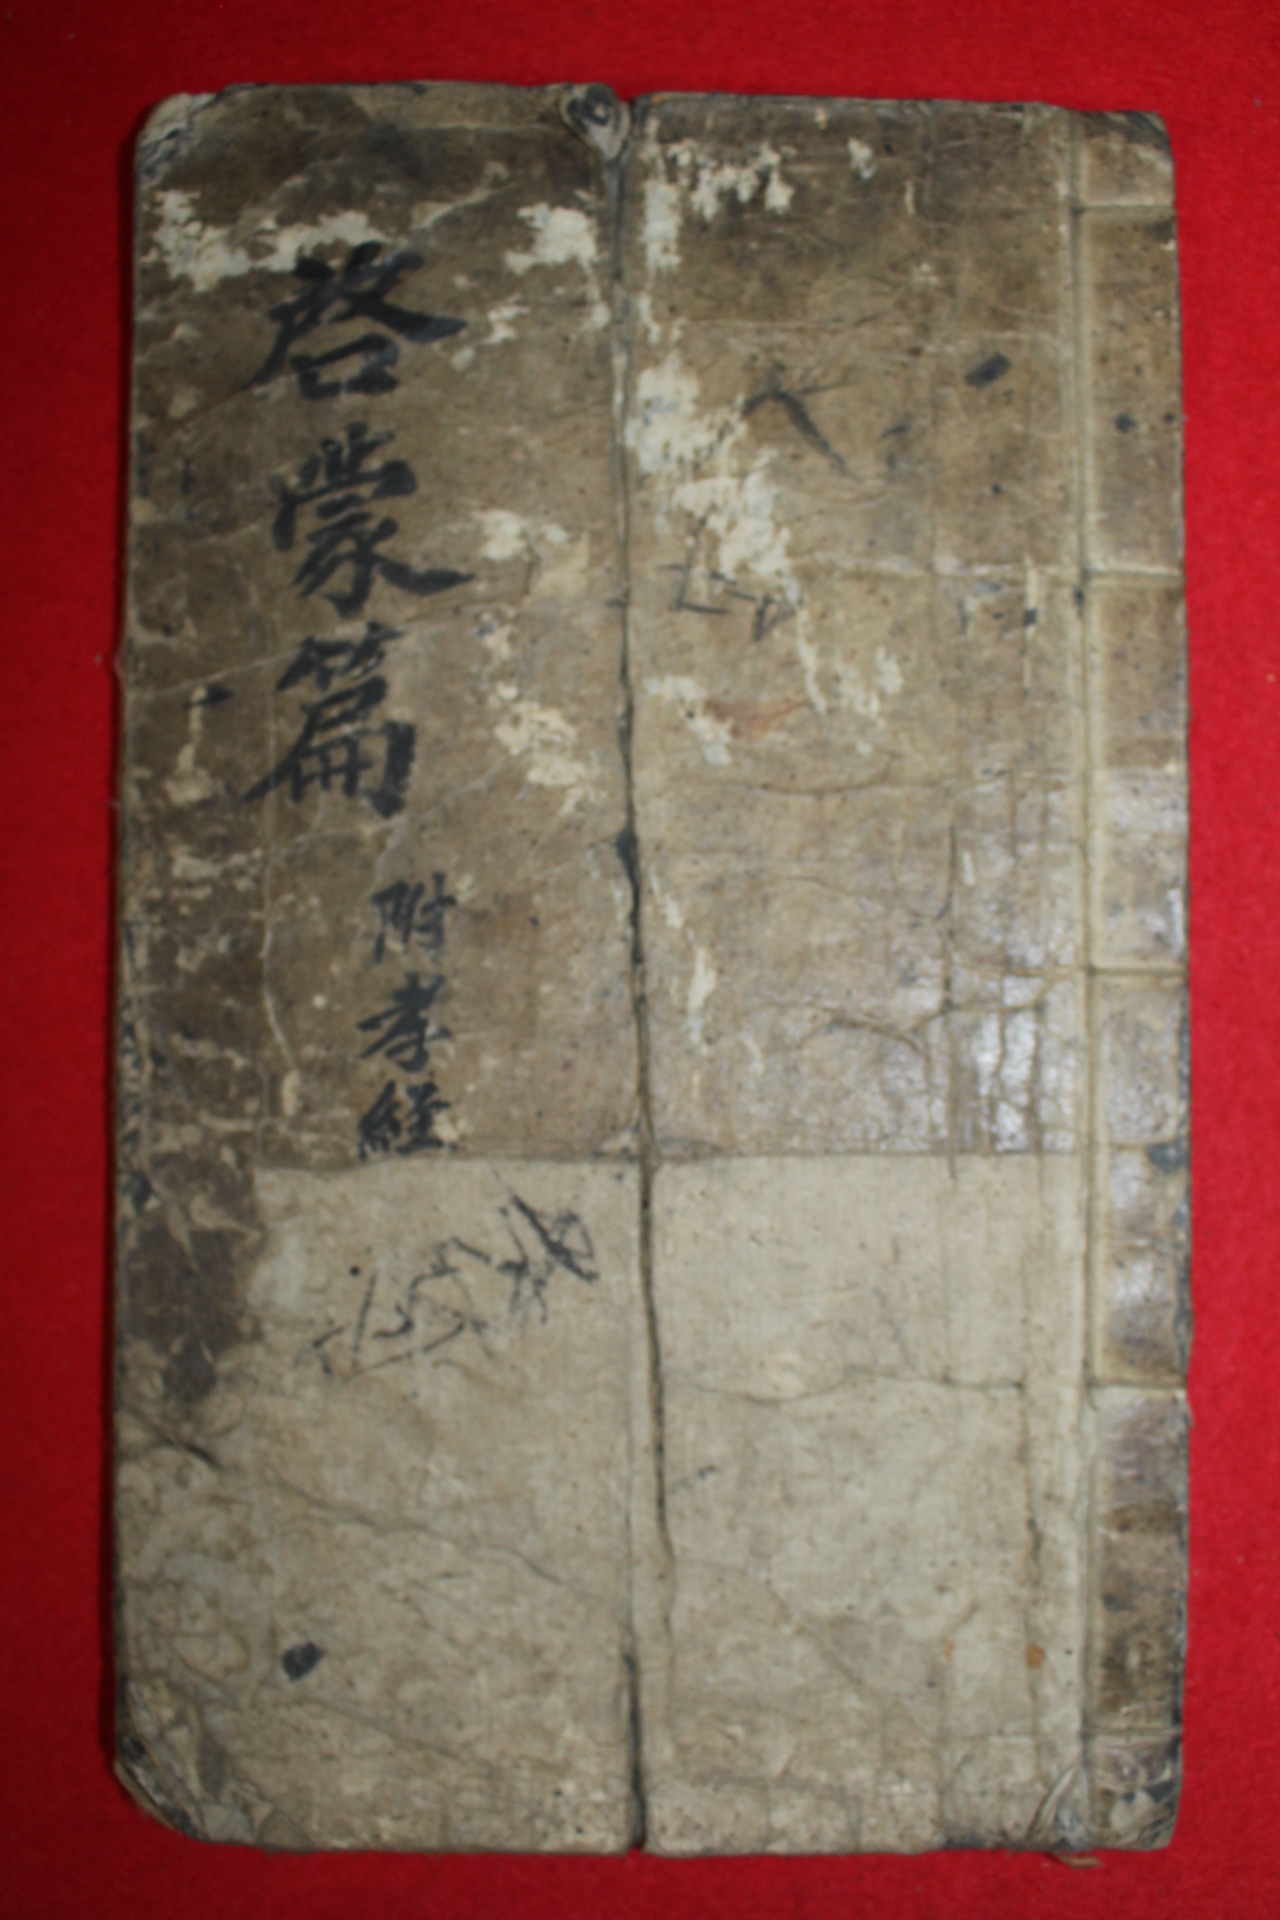 啓蒙篇
附孝經